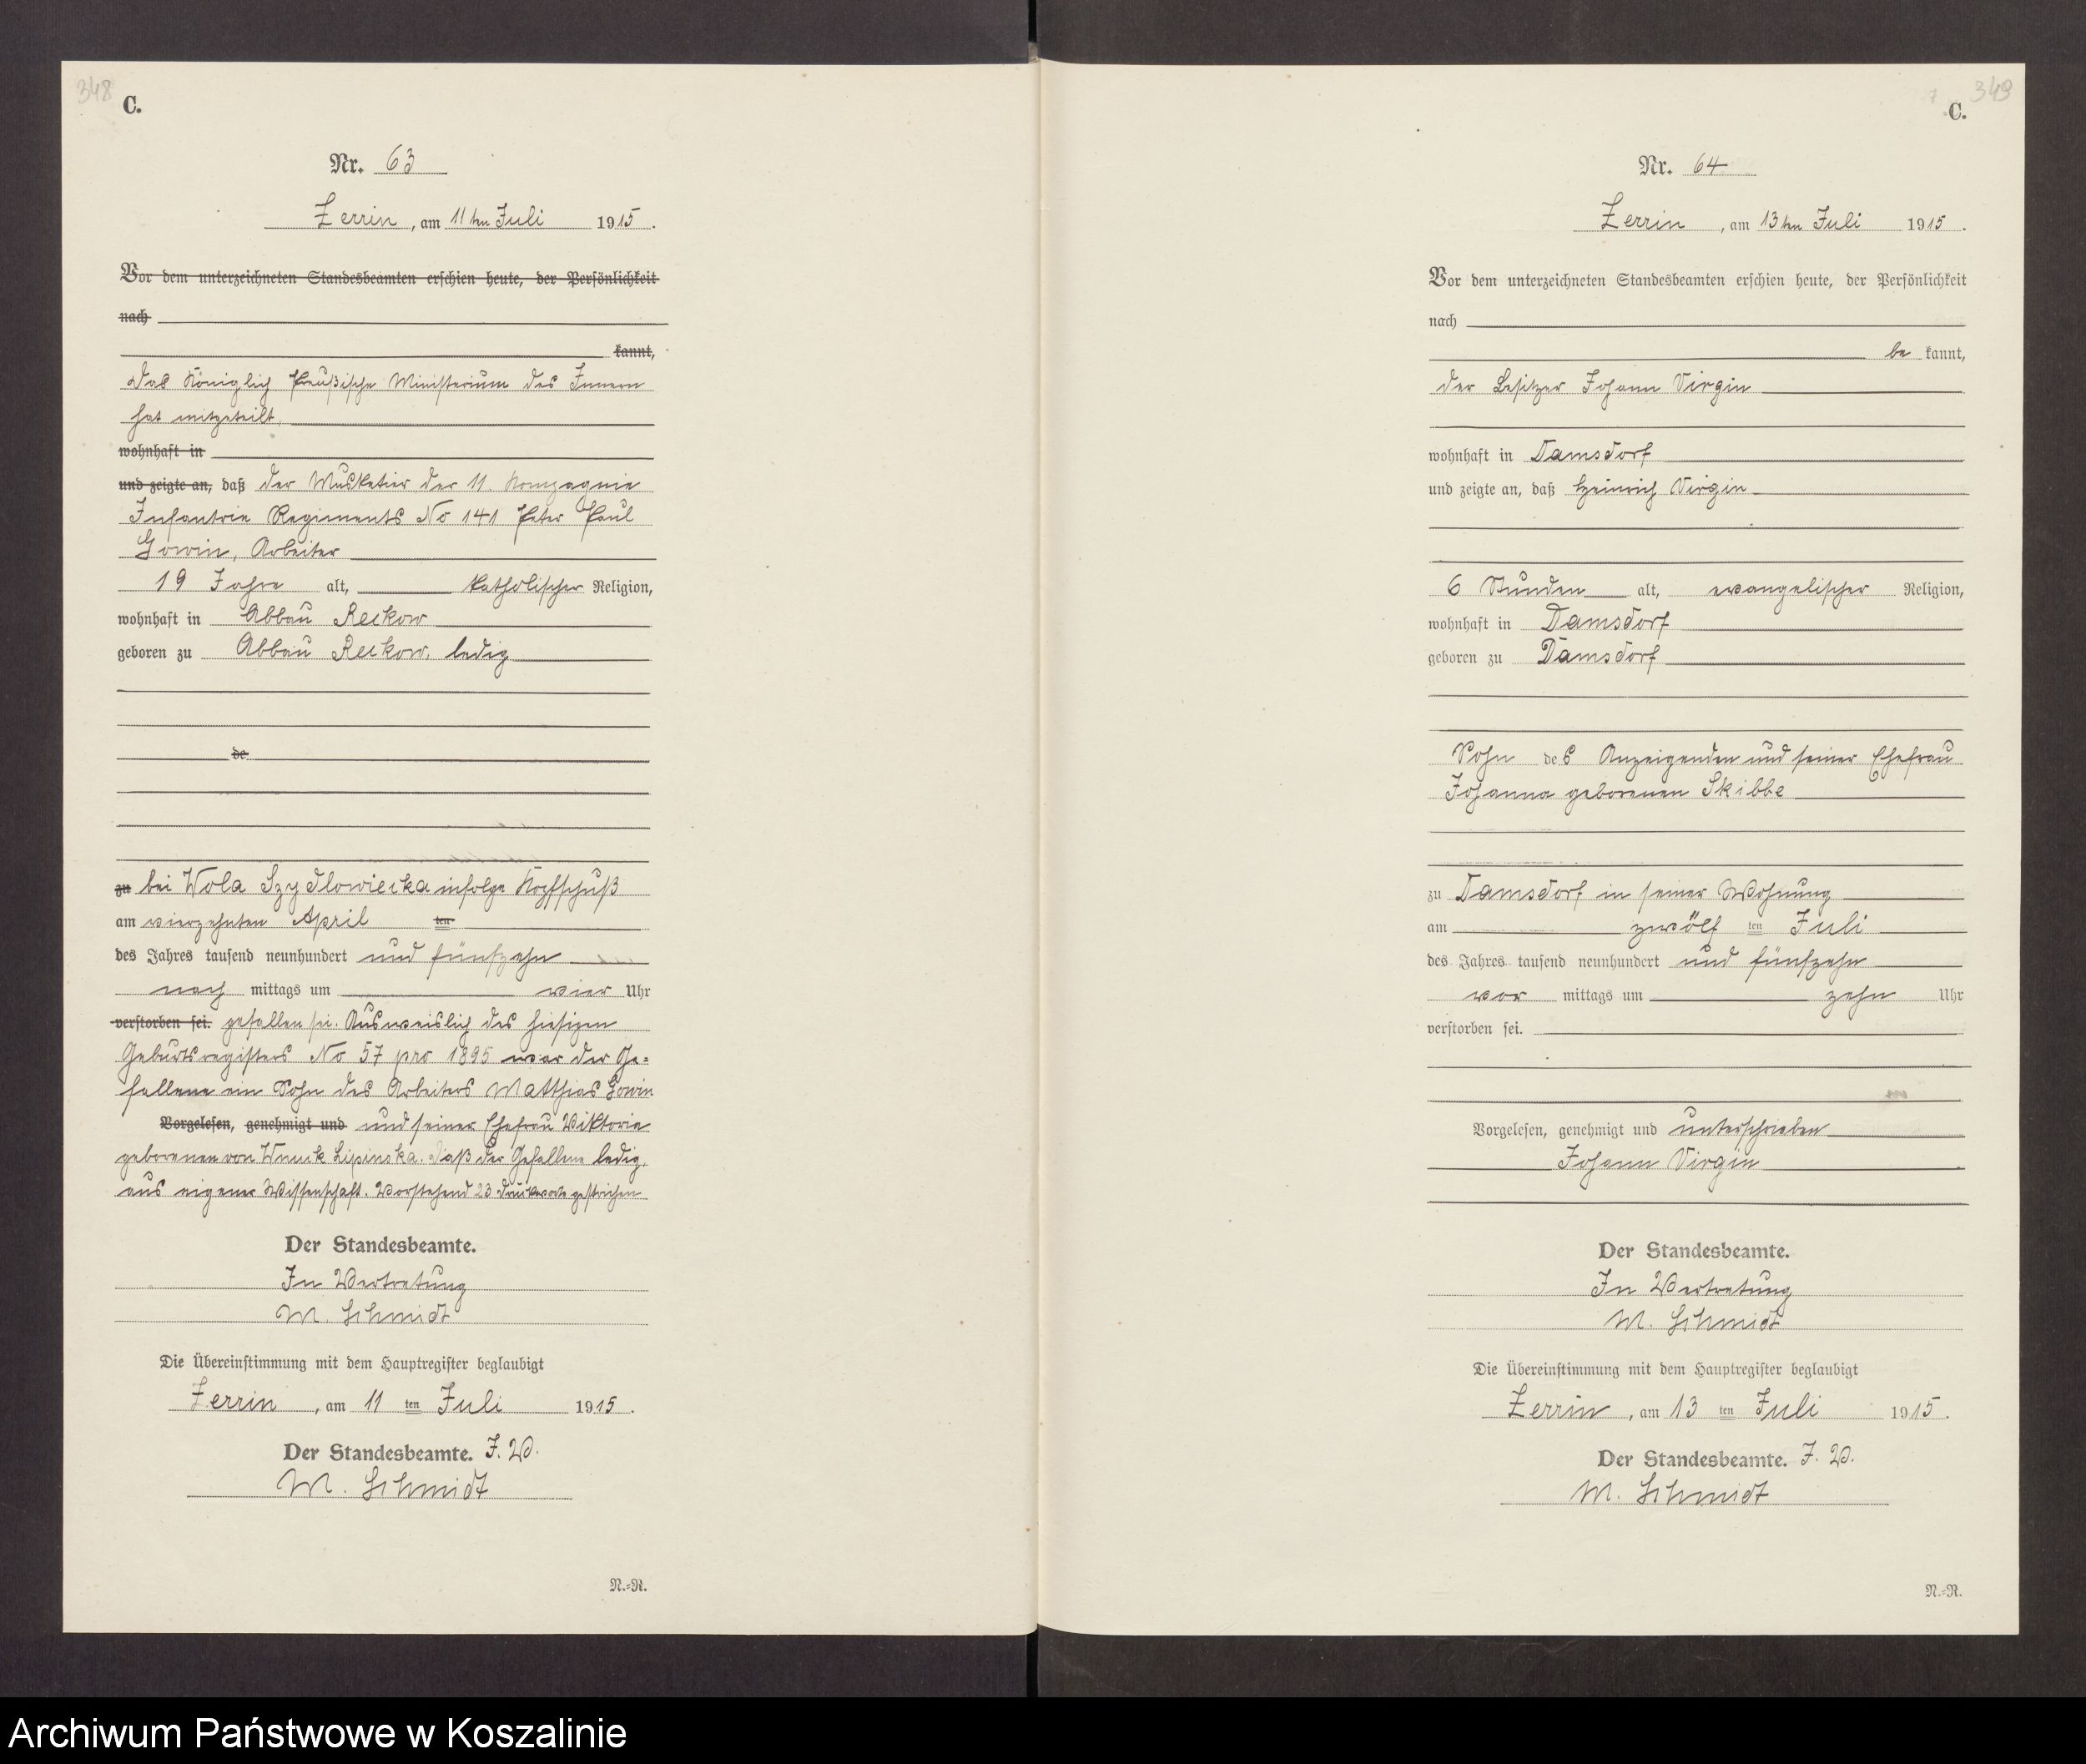 348
C.
Nr. 63
Zerrin, am 11ten Juli 1915.
Vor dem unterzeichneten Standesbeamten erschien heute, der Persönlichkeit
nach
kannt,
Das Königlich Preußische Ministerium des Innern
hat mitgeteilt,
wohnhaft in
und zeigte an, daß der Musketier der 11. Kompagnie
Infantrie Regiments No 141 Peter Paul
Gowin, Arbeiter
19 Jahre alt, katholischer Religion,
wohnhaft in Abbau Reckow
geboren zu Abbau Reckow, ledig
de
zu bei Wola Szydlowiecka infolge Kopfschuß
am vierzehnten April ten
des Jahres tausend neunhundert und fünfzehn
nach mittags um vier Uhr
verstorben sei. gefallen sei. Ausweislich des hiesigen
Geburtsregisters No 57 pro 1895 war der Ge=
fallene ein Sohn des Arbeiters Matthias Gowin
Vorgelesen, genehmigt und und seiner Ehefrau Viktoria
geborenen von Wnuck Lipinska. Daß der Gefallene ledig,
aus eigener Wissenschaft. Vorstehend 23 Druckworte gestrichen
Der Standesbeamte.
In Vertretung
M. Schmidt
Die Übereinstimmung mit dem Hauptregister beglaubigt
Zerrin, am 11 ten Juli 1915.
Der Standesbeamte. I. V.
M. Schmidt
N.=R.
349
C.
Nr. 64
Zerrin, am 13ten Juli 1915.
Vor dem unterzeichneten Standesbeamten erschien heute, der Persönlichkeit
nach
be kannt,
der Besitzer Johann Virgin
wohnhaft in Damsdorf
und zeigte an, daß Heinrich Virgin
6 Stunden alt, evangelischer Religion,
wohnhaft in Damsdorf
geboren zu Damsdorf
Sohn des Anzeigenden und seiner Ehefrau
Johanna geborenen Skibbe
zu Damsdorf in seiner Wohnung
am zwölf ten Juli
des Jahres tausend neunhundert und fünfzehn
vor mittags um zehn Uhr
verstorben sei.
Vorgelesen, genehmigt und unterschrieben
Johann Virgin
Der Standesbeamte.
In Vertretung
M. Schmidt
Die Übereinstimmung mit dem Hauptregister beglaubigt
Zerrin, am 13 ten Juli 1915.
Der Standesbeamte. I. V.
M. Schmidt
N.=R.
Archiwum Państwowe w Koszalinie